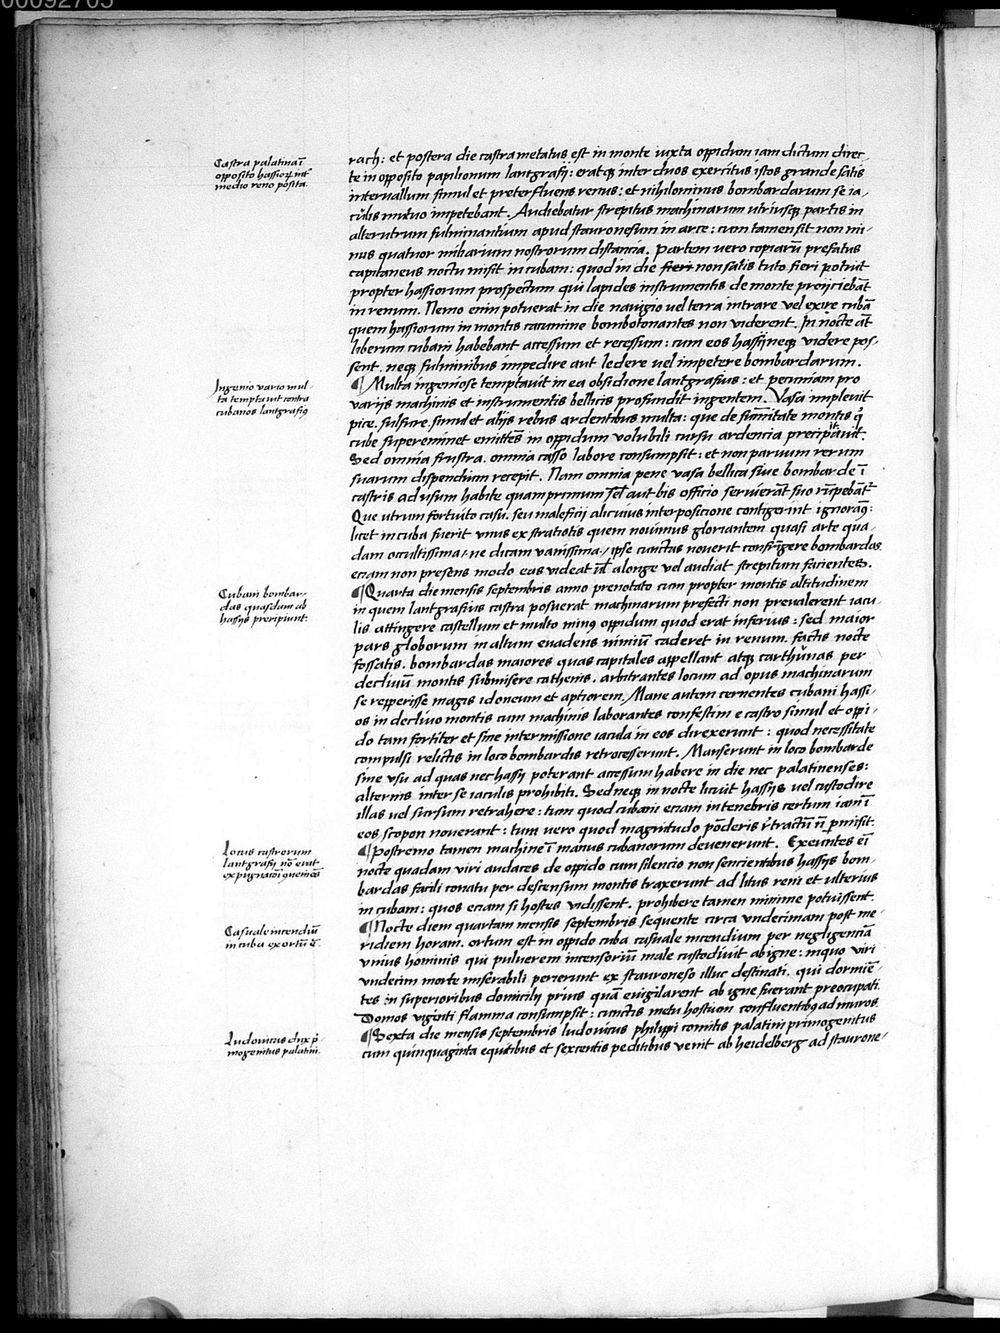 00092705
Castra palatina ī
opposito hassioꝝ īt͛
medio reno pōsita.
rach: et postera die castrametatus est in monte iuxta oppidum iam dictum direc-
te in opposito papilionum lantgrafij: eratqꝫ inter duos exercitus istos grande satis
interuallum simul et preterfluens renus: et nihilominus bombardarum se ia-
culis mutuo impetebant. Audiebatur strepitus machinarum utriusqꝫ partis in
alterutrum fulminantium apud stauronesum in arce: cum tamen sit non mi-
nus quatuor miliarium nostrorum distancia. Partem vero copiarū prefatus
capitaneus noctu misit in cubam: quod in die fieri non satis tuto fieri potuit
propter hassiorum prospectum qui lapides instrumentis de monte proijciebāt
in renum. Nemo enim potuerat in die nauigio uel terra intrare vel exire cubā
quem hassiorum in montis cacumine bombotonantes non viderent. In nocte āt
liberum cubani habebant accessum et recessum: cum eos hassij neqꝫ videre pos-
sent. neqꝫ fulminibus impedire aut ledere uel impetere bombardarum.
Ingenio vario mul-
ta temptauit contra
cubanos lantgrafiꝰ
¶ Multa ingeniose temptauit in ea obsidione lantgrafius: et pecuniam pro
varijs machinis et instrumentis bellicis profundit ingentem. Vasa impleuit
pice. sulfure. simul et alijs rebus ardentibus multa: que de sum̄itate montis q̇
cube supereminet emittēs in oppidum volubili cursu ardencia precipitauit.
Sed omnia frustra. omnia casso labore consumpsit: et non paruum rerum
suarum dispendium recepit. Nam omnia pene vasa bellica siue bombarde ī
castris ad usum habite quamprimum sel̄ aut bis officio seruierāt suo rūpebāt͛
Que utrum fortuito casu. seu maleficij alicuius interposicione contigerint ignoraꝫ:
licet in cuba fuerit vnus ex stratiotis quem nouimus gloriantem quasi arte qua-
dam occultissima, ne dicam vanissima, ipse cunctas nouerit confrīgere bombardas
eciam non presens modo eas videat ul̄ a longe vel audiat strepitum facientes.
Cubani bombar-
das quasdam ab
hassijs preripiunt.
¶ Quarta die mensis septembris anno prenotato cum propter montis altitudinem
in quem lantgrafius castra posuerat machinarum prefecti non preualerent iacu-
lis attingere castellum et multo minꝰ oppidum quod erat inferius: sed maior
pars globorum in altum euadens nimiū caderet in renum. factis nocte
fossatis. bombardas maiores quas capitales appellant atqꝫ carthunas per
decliuū montis submisere cathenis. arbitrantes locum ad opus machinarum
se repperisse magis idoneum et aptiorem. Mane autem cernentes cubani hassi-
os in decliuo montis cum machinis laborantes confestim e castro simul et oppi-
do tam fortiter et sine intermissione iacula in eos direxerunt: quod necessitate
compulsi relictis in loco bombardis retrocesserunt. Manserunt in loco bombarde
sine vsu ad quas nec hassij poterant accessum habere in die nec palatinenses:
alternis inter se iaculis prohibiti. Sed neqꝫ in nocte licuit hassijs uel custodire
illas uel sursum retrahere: tum quod cubani eciam in tenebris certum iam ī
eos scopon nouerant: tum vero quod magnitudo pōderis r̓tractū n̄ ꝑmisit.
Locus castrorum
lantgrafij nō erat
¶ Postremo tamen machine ī manus cubanorum deuenerunt. Exeuntes eī
nocte quadam viri audaces de oppido cum silencio non sencientibus hassijs bom-
bardas facili conatu per descensum montis traxerunt ad litus reni et ulterius
in cubam: quos eciam si hostes vidissent. prohibere tamen minime potuissent.
Casuale incendiū
in cuba exortū ē.
¶ Nocte diem quartam mensis septembris sequente circa vndecimam post me-
ridiem horam. ortum est in oppido cuba casuale incendium per negligenciā
vnius hominis qui puluerem incensoriū male custodiuit ab igne: in quo viri
vndecim morte miserabili perierunt ex stauroneso illuc destinati. qui dormiē-
tes in superioribus domicilij prius quā euigilarent ab igne fuerant preocupati.
Domos viginti flamma consumpsit: cunctis metu hostium confluentibꝰ ad muros.
Ludouicus dux p̓-
mogenitus palatini.
¶ Sexta die mensis septembris ludouicus philippi comitis palatini primogenitus
cum quinquaginta equitibus et sexcentis peditibus venit ab heidelberg ad staurone-